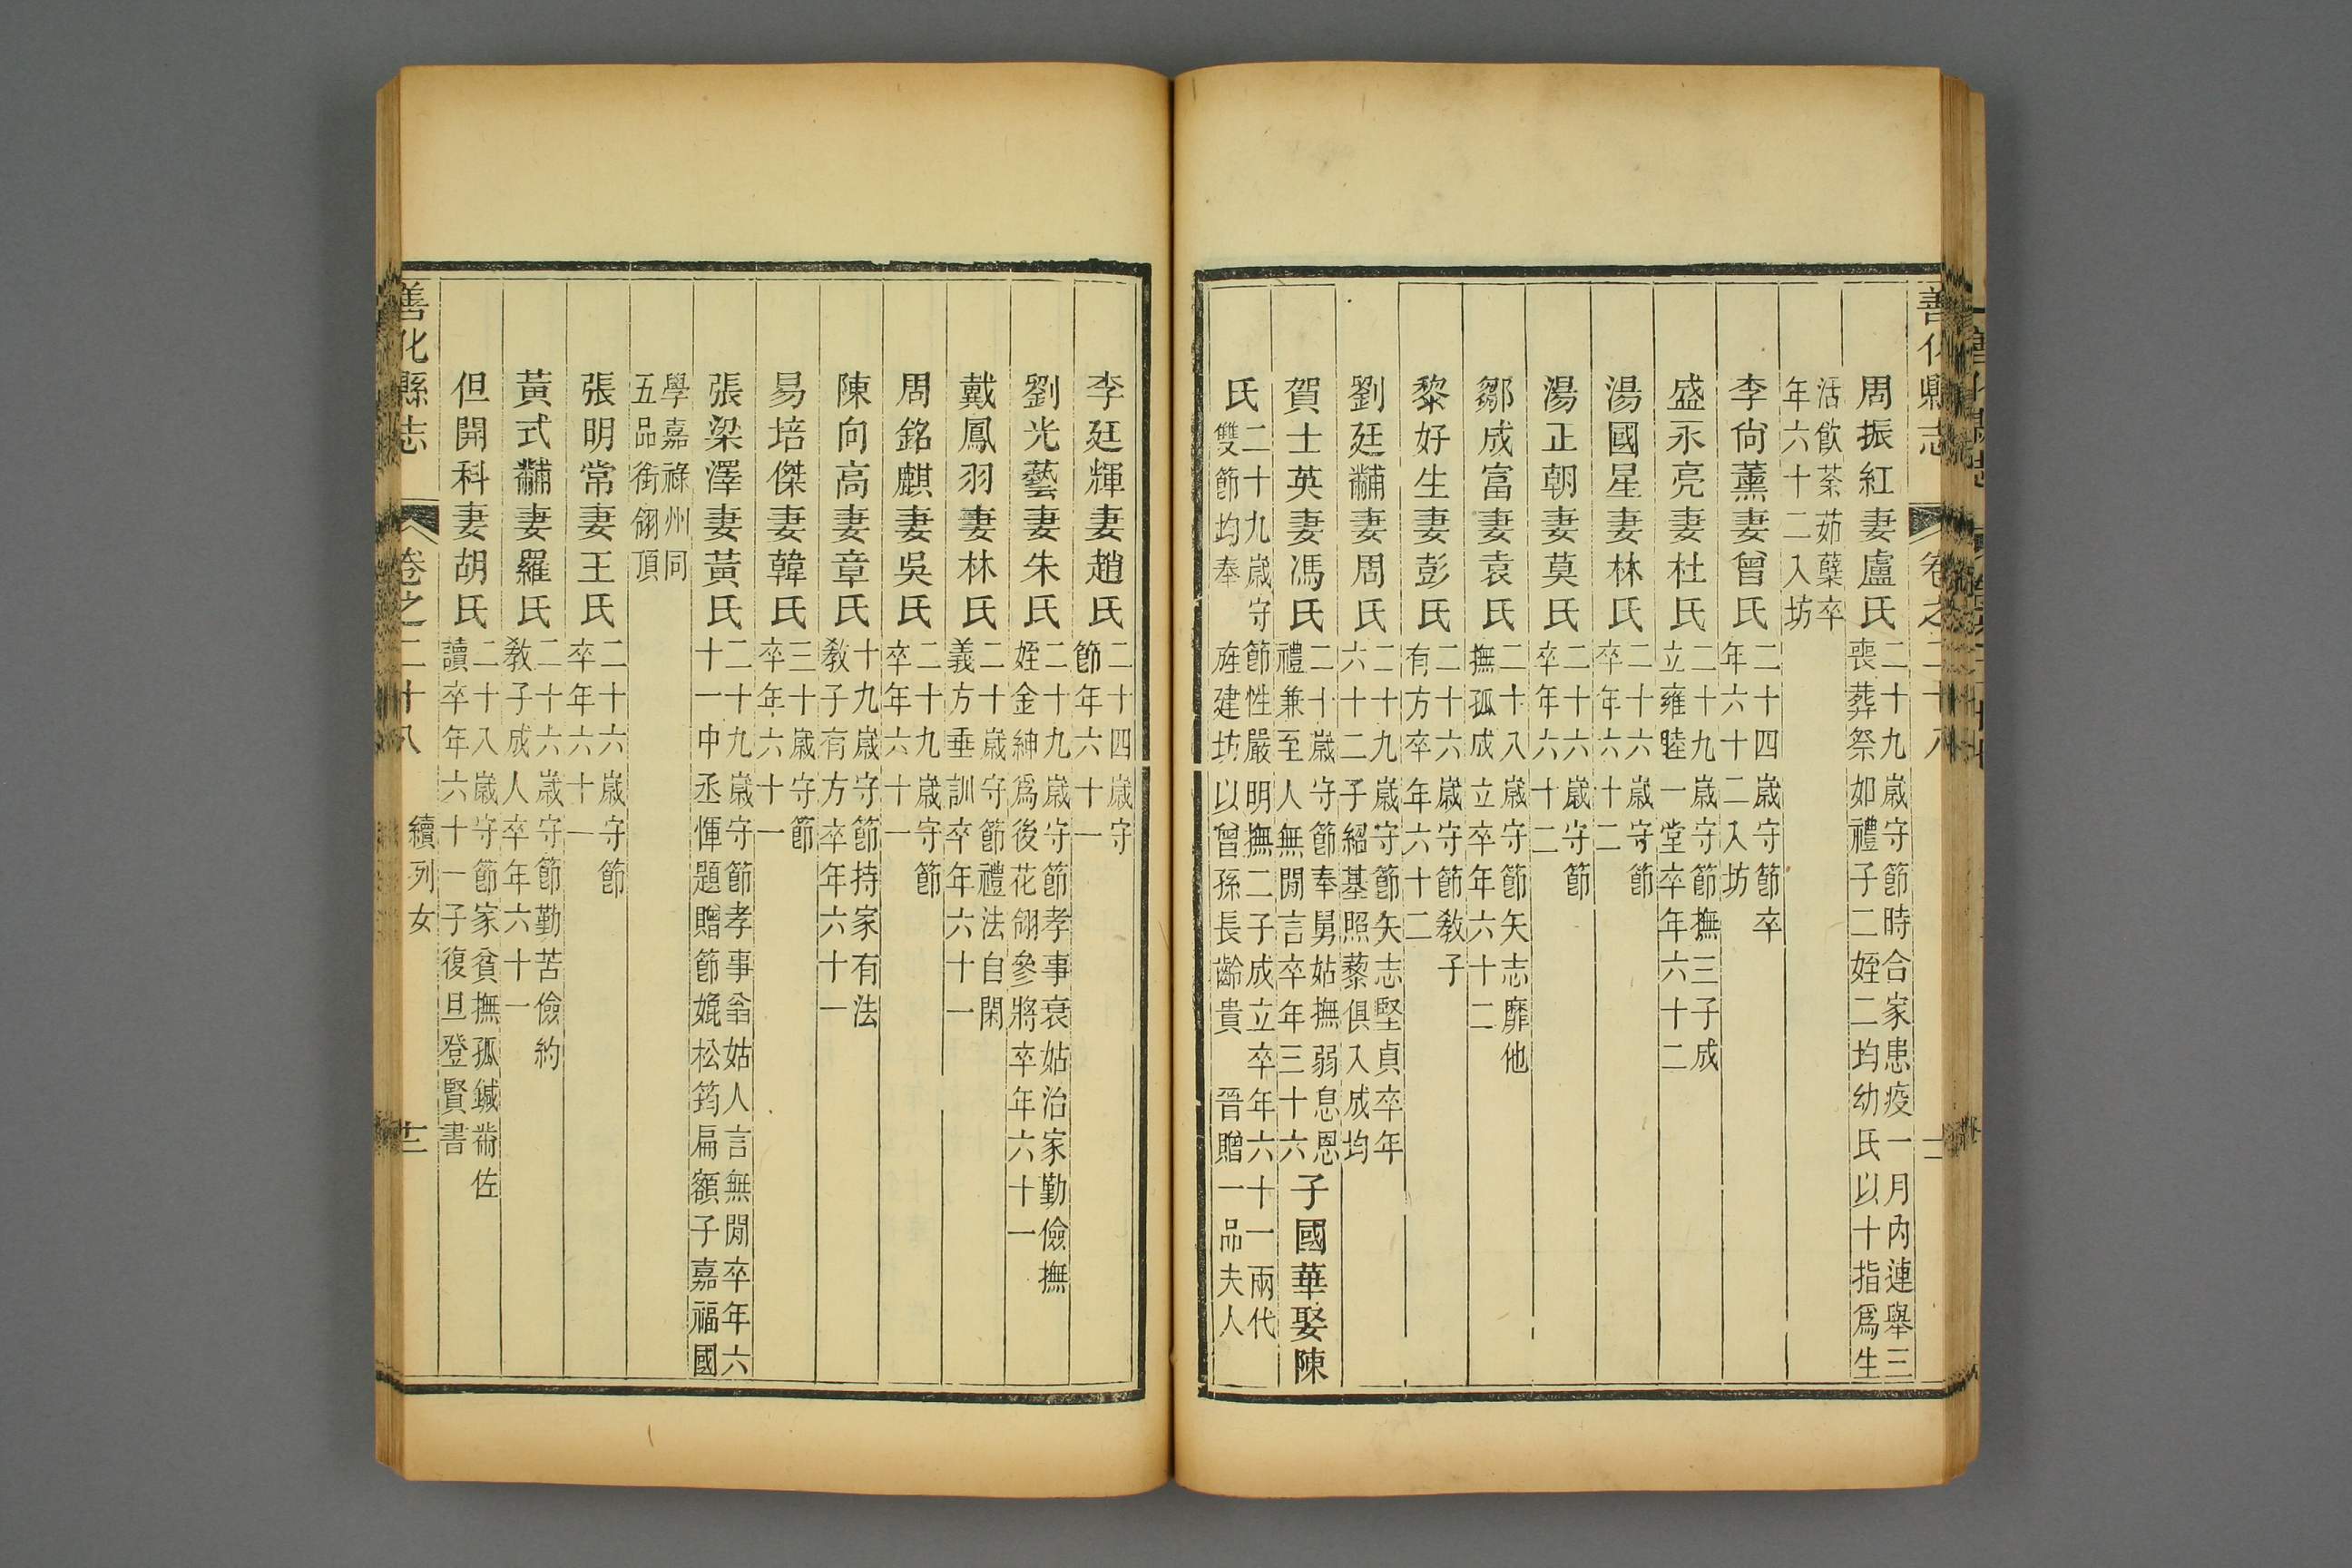 善化縣志 卷之二十八 十二
周振紅妻盧氏 二十九歲守節時合家患疫一月內連舉三
喪葬祭如禮子二姪二均幼氏以十指爲生
活飮荼茹蘖卒
年六十二入坊
李尙薰妻曾氏 二十四歲守節卒
年六十二入坊
盛永亮妻杜氏 二十九歲守節撫三子成
立雍睦一堂卒年六十二
湯國星妻林氏 二十六歲守節
卒年六十二
湯正朝妻莫氏 二十六歲守節
卒年六十二
鄒成富妻袁氏 二十八歲守節矢志靡他
撫孤成立卒年六十二
黎好生妻彭氏 二十六歲守節敎子
有方卒年六十二
劉廷黼妻周氏 二十九歲守節矢志堅貞卒年
六十二子紹基照藜俱入成均
賀士英妻馮氏 二十歲守節奉舅姑撫弱息恩
禮兼至人無閒言卒年三十六 子國華娶陳
氏 二十九歲守節性嚴明撫二子成立卒年六十一兩代
雙節均奉 旌建坊以曾孫長齡貴 晉贈一品夫人
李廷輝妻趙氏 二十四歲守
節年六十一
劉光藝妻朱氏 二十九歲守節孝事衰姑治家勤儉撫
姪金紳爲後花翎參將卒年六十一
戴鳳羽妻林氏 二十歲守節禮法自閑
義方垂訓卒年六十一
周銘麒妻吳氏 二十九歲守節
卒年六十一
陳向高妻章氏 十九歲守節持家有法
敎子有方卒年六十一
易培傑妻韓氏 三十歲守節
卒年六十一
張梁澤妻黃氏 二十九歲守節孝事翁姑人言無閒卒年六
十一中丞惲題贈節媲松筠扁額子嘉福國
學嘉祿州同
五品銜翎頂
張明常妻王氏 二十六歲守節
卒年六十一
黃式黼妻羅氏 二十六歲守節勤苦儉約
敎子成人卒年六十一
但開科妻胡氏 二十八歲守節家貧撫孤鍼黹佐
讀卒年六十一子復旦登賢書
善化縣志 卷之二十八 續列女 十二